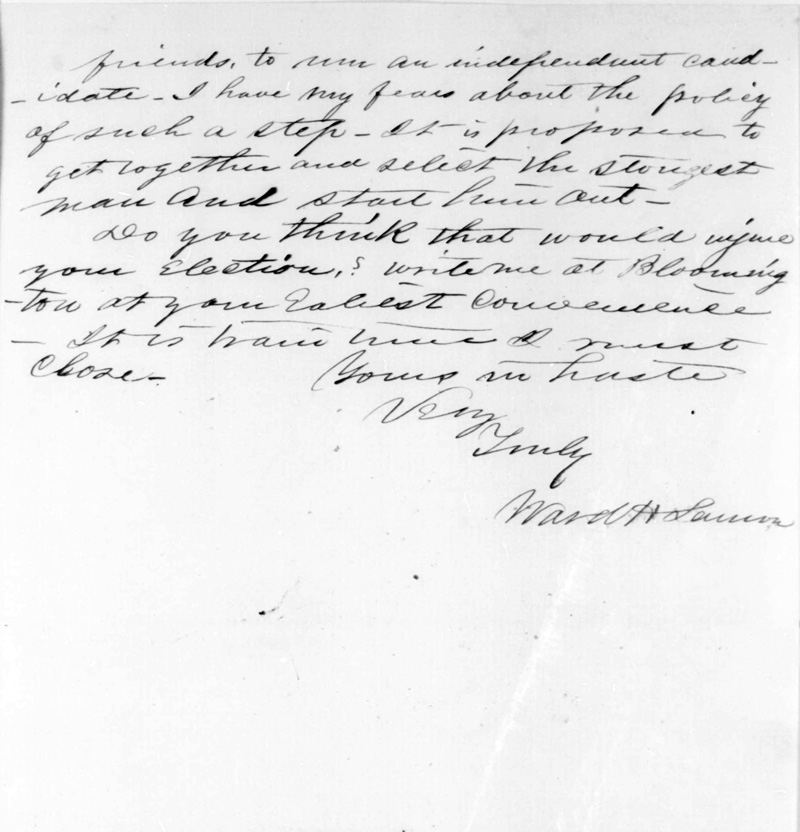 friends, to run an independent cand-
- idate - I have my fears about the policy
of such a step - It is proposed to
get together and select the strongest
man and start him out -
Do you think that would injure
your Election,? write me at Blooming
-ton at your Earliest Convenience
- It is train time & I must
Close - Yours in haste
Very
Truly
Ward H Lamon